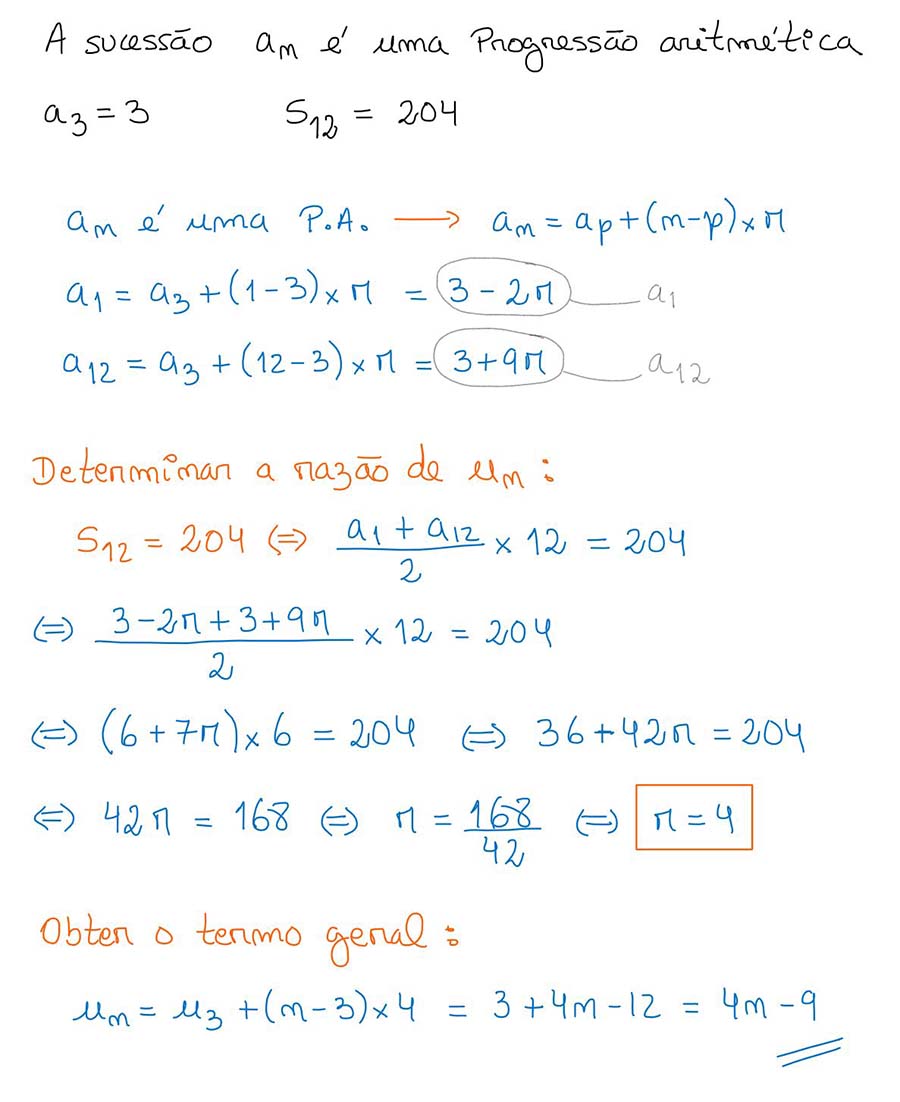 A sucessão aₙ é uma Progressão aritmética
a₃ = 3 S₁₂ = 204
aₙ é uma P.A. ⟶ aₙ = aₚ + (n-p) × r
a₁ = a₃ + (1-3) × r = 3 - 2r a₁
a₁₂ = a₃ + (12-3) × r = 3 + 9r a₁₂
Determinar a razão de uₙ :
S₁₂ = 204 ⇔ (a₁ + a₁₂)/2 × 12 = 204
⇔ (3 - 2r + 3 + 9r)/2 × 12 = 204
⇔ (6 + 7r) × 6 = 204 ⇔ 36 + 42r = 204
⇔ 42r = 168 ⇔ r = 168/42 ⇔ r = 4
Obter o termo geral :
uₙ = u₃ + (n-3) × 4 = 3 + 4n - 12 = 4n - 9